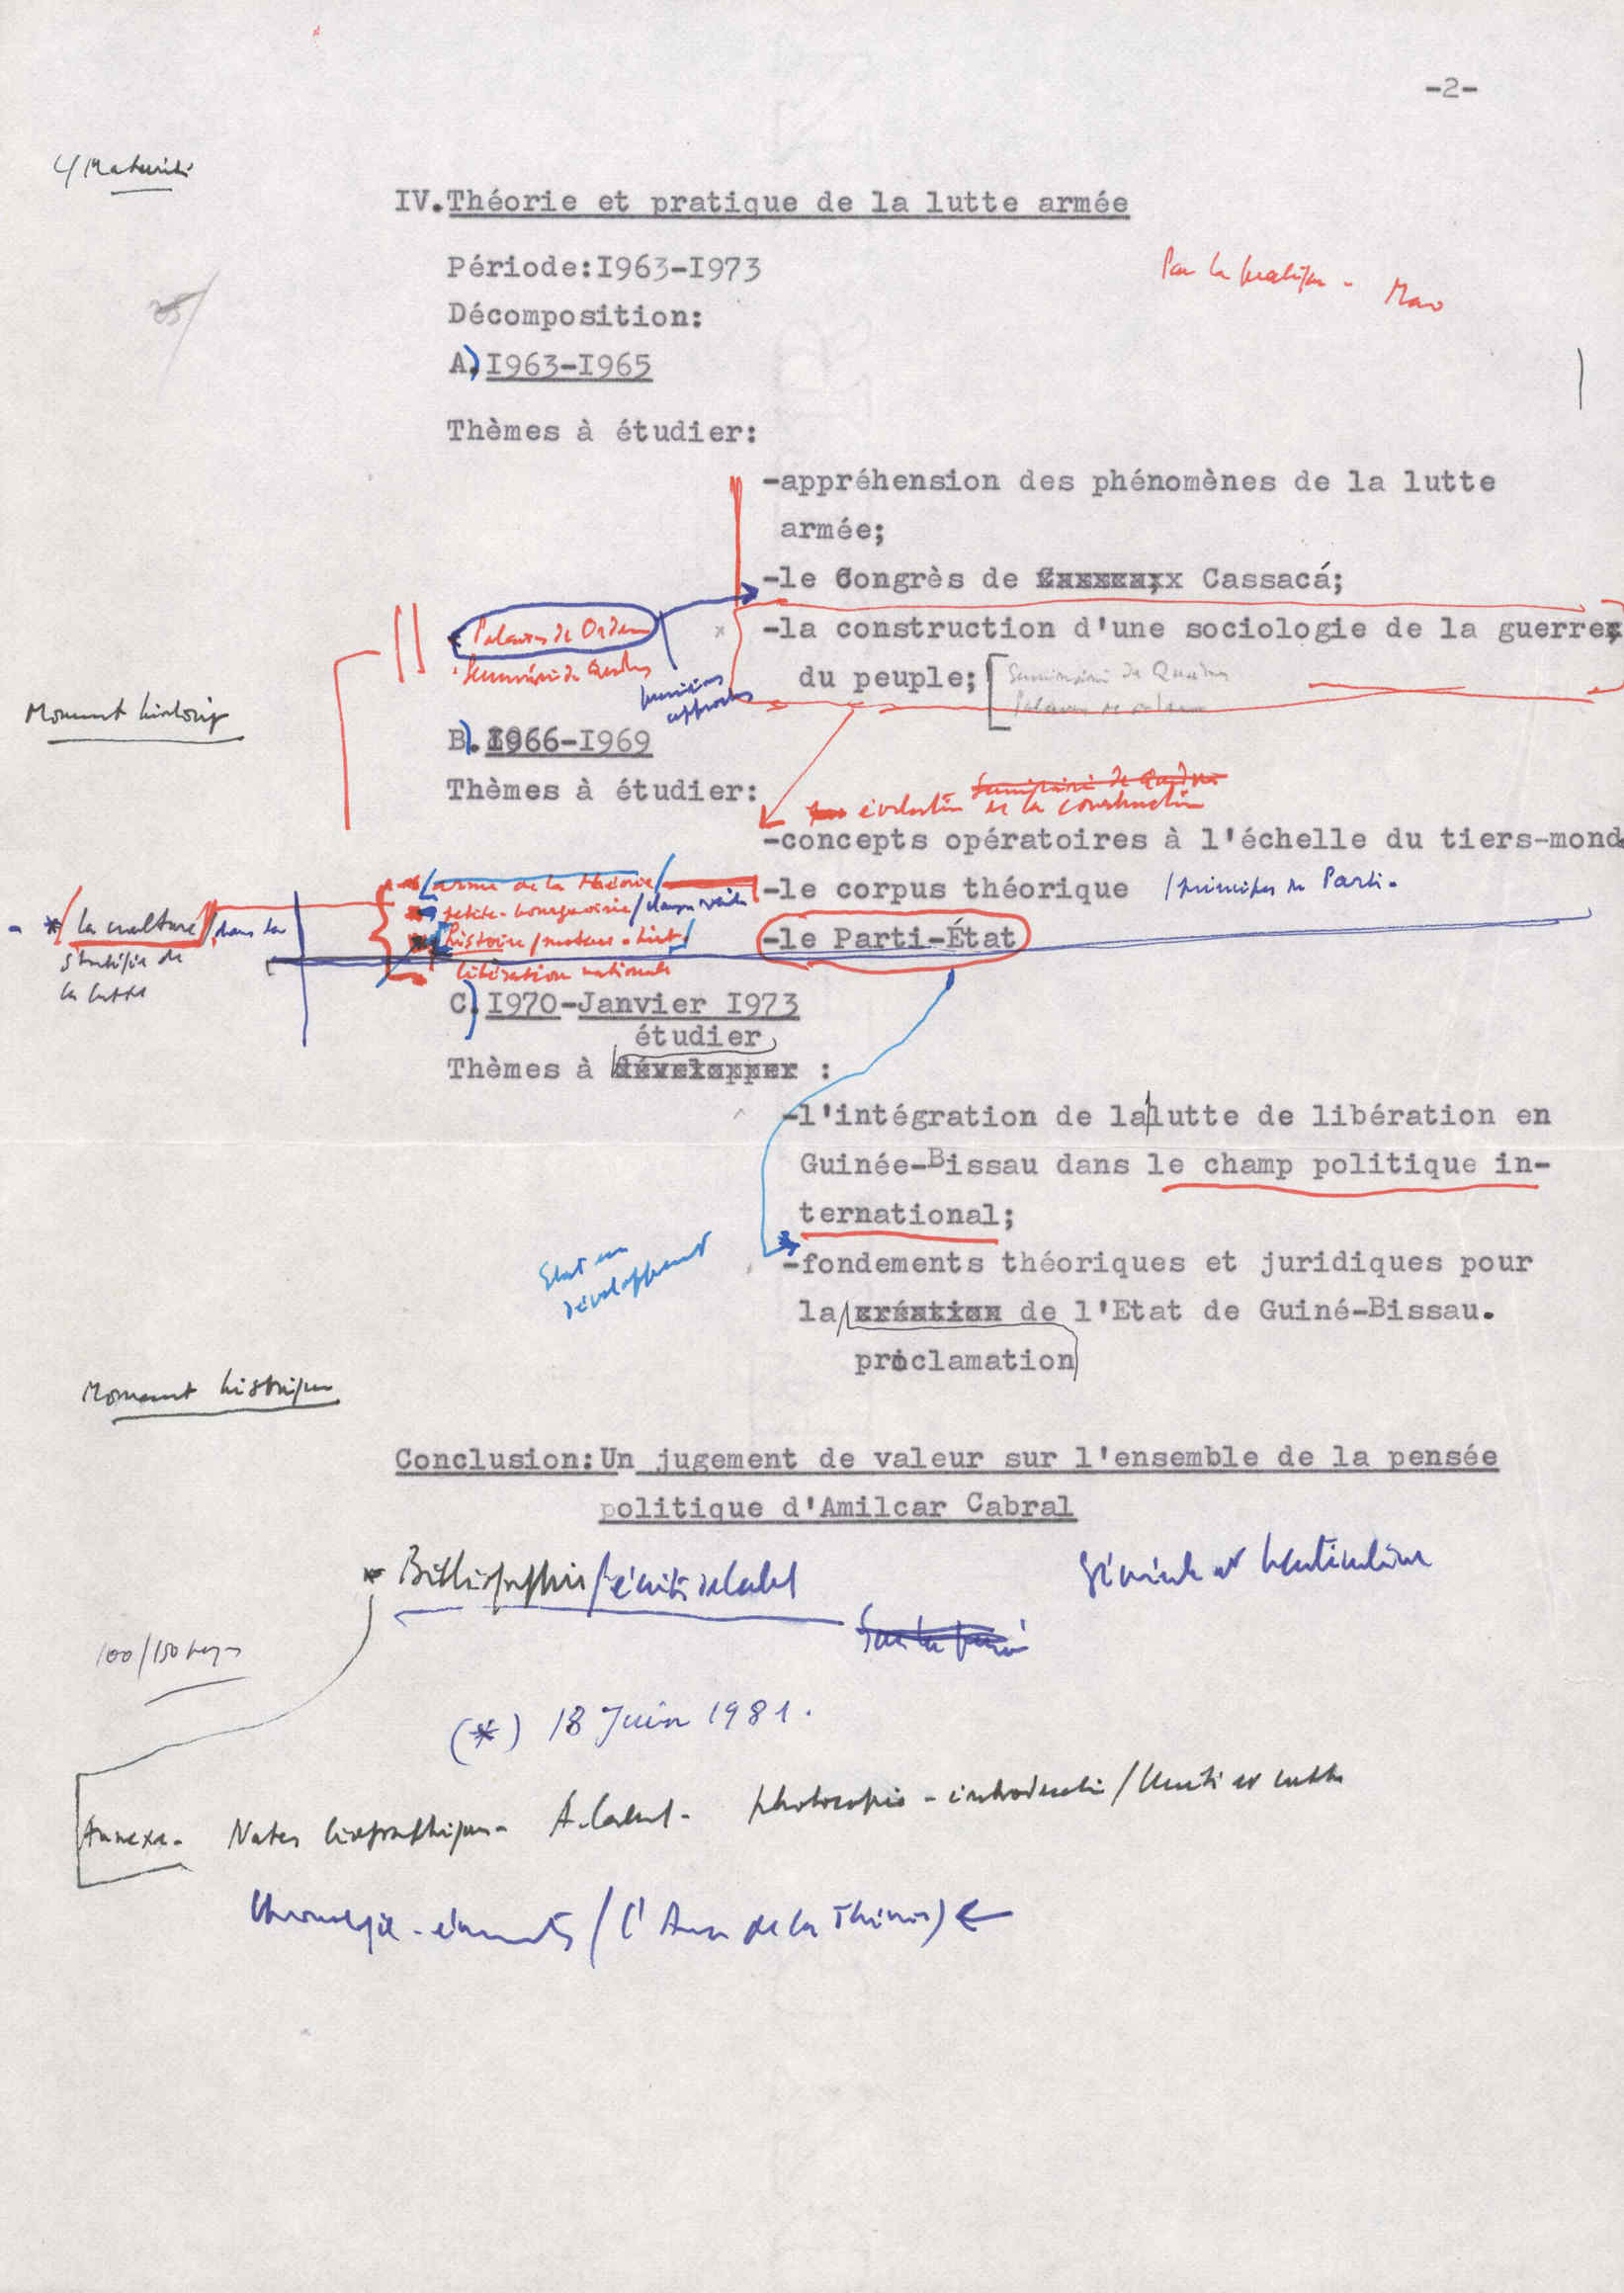 -2-
4/ Maturité
IV.Théorie et pratique de la lutte armée
Période:I963-I973
Par la pratique - Mao
Décomposition:
A) I963-I965
Thèmes à étudier:
-appréhension des phénomènes de la lutte
armée;
-le Congrès de Cassacá;
Palavras de Ordem
-la construction d'une sociologie de la guerre
Seminário de Quadros
du peuple;
Seminário de Quadros
Palavras de ordem
premières
approches
Moment historique
B). I966-I969
Thèmes à étudier:
Seminário de Quadros
évolution de la construction
-concepts opératoires à l'échelle du tiers-mond
arme de la théorie/
-le corpus théorique /principes du Parti.
petite-bourgeoisie/
- * / la culture / dans la
stratégie de
la lutte
histoire/moteur-hist/
-le Parti-État
libération nationale
C) I970-Janvier I973
étudier
Thèmes à développer :
-l'intégration de la lutte de libération en
Guinée-Bissau dans le champ politique in-
ternational;
Etat en
développement
-fondements théoriques et juridiques pour
la création de l'Etat de Guiné-Bissau.
proclamation
Moment historique
Conclusion:Un jugement de valeur sur l'ensemble de la pensée
politique d'Amilcar Cabral
* Bibliographie/écrits de Cabral
Générale et particulière
100/150 pages
(*) 18 Juin 1981.
Annexe- Notes biographiques- A. Cabral- photocopie - introduction/Unité et lutte
Chronologie - éléments (l'Arme de la Théorie) ←